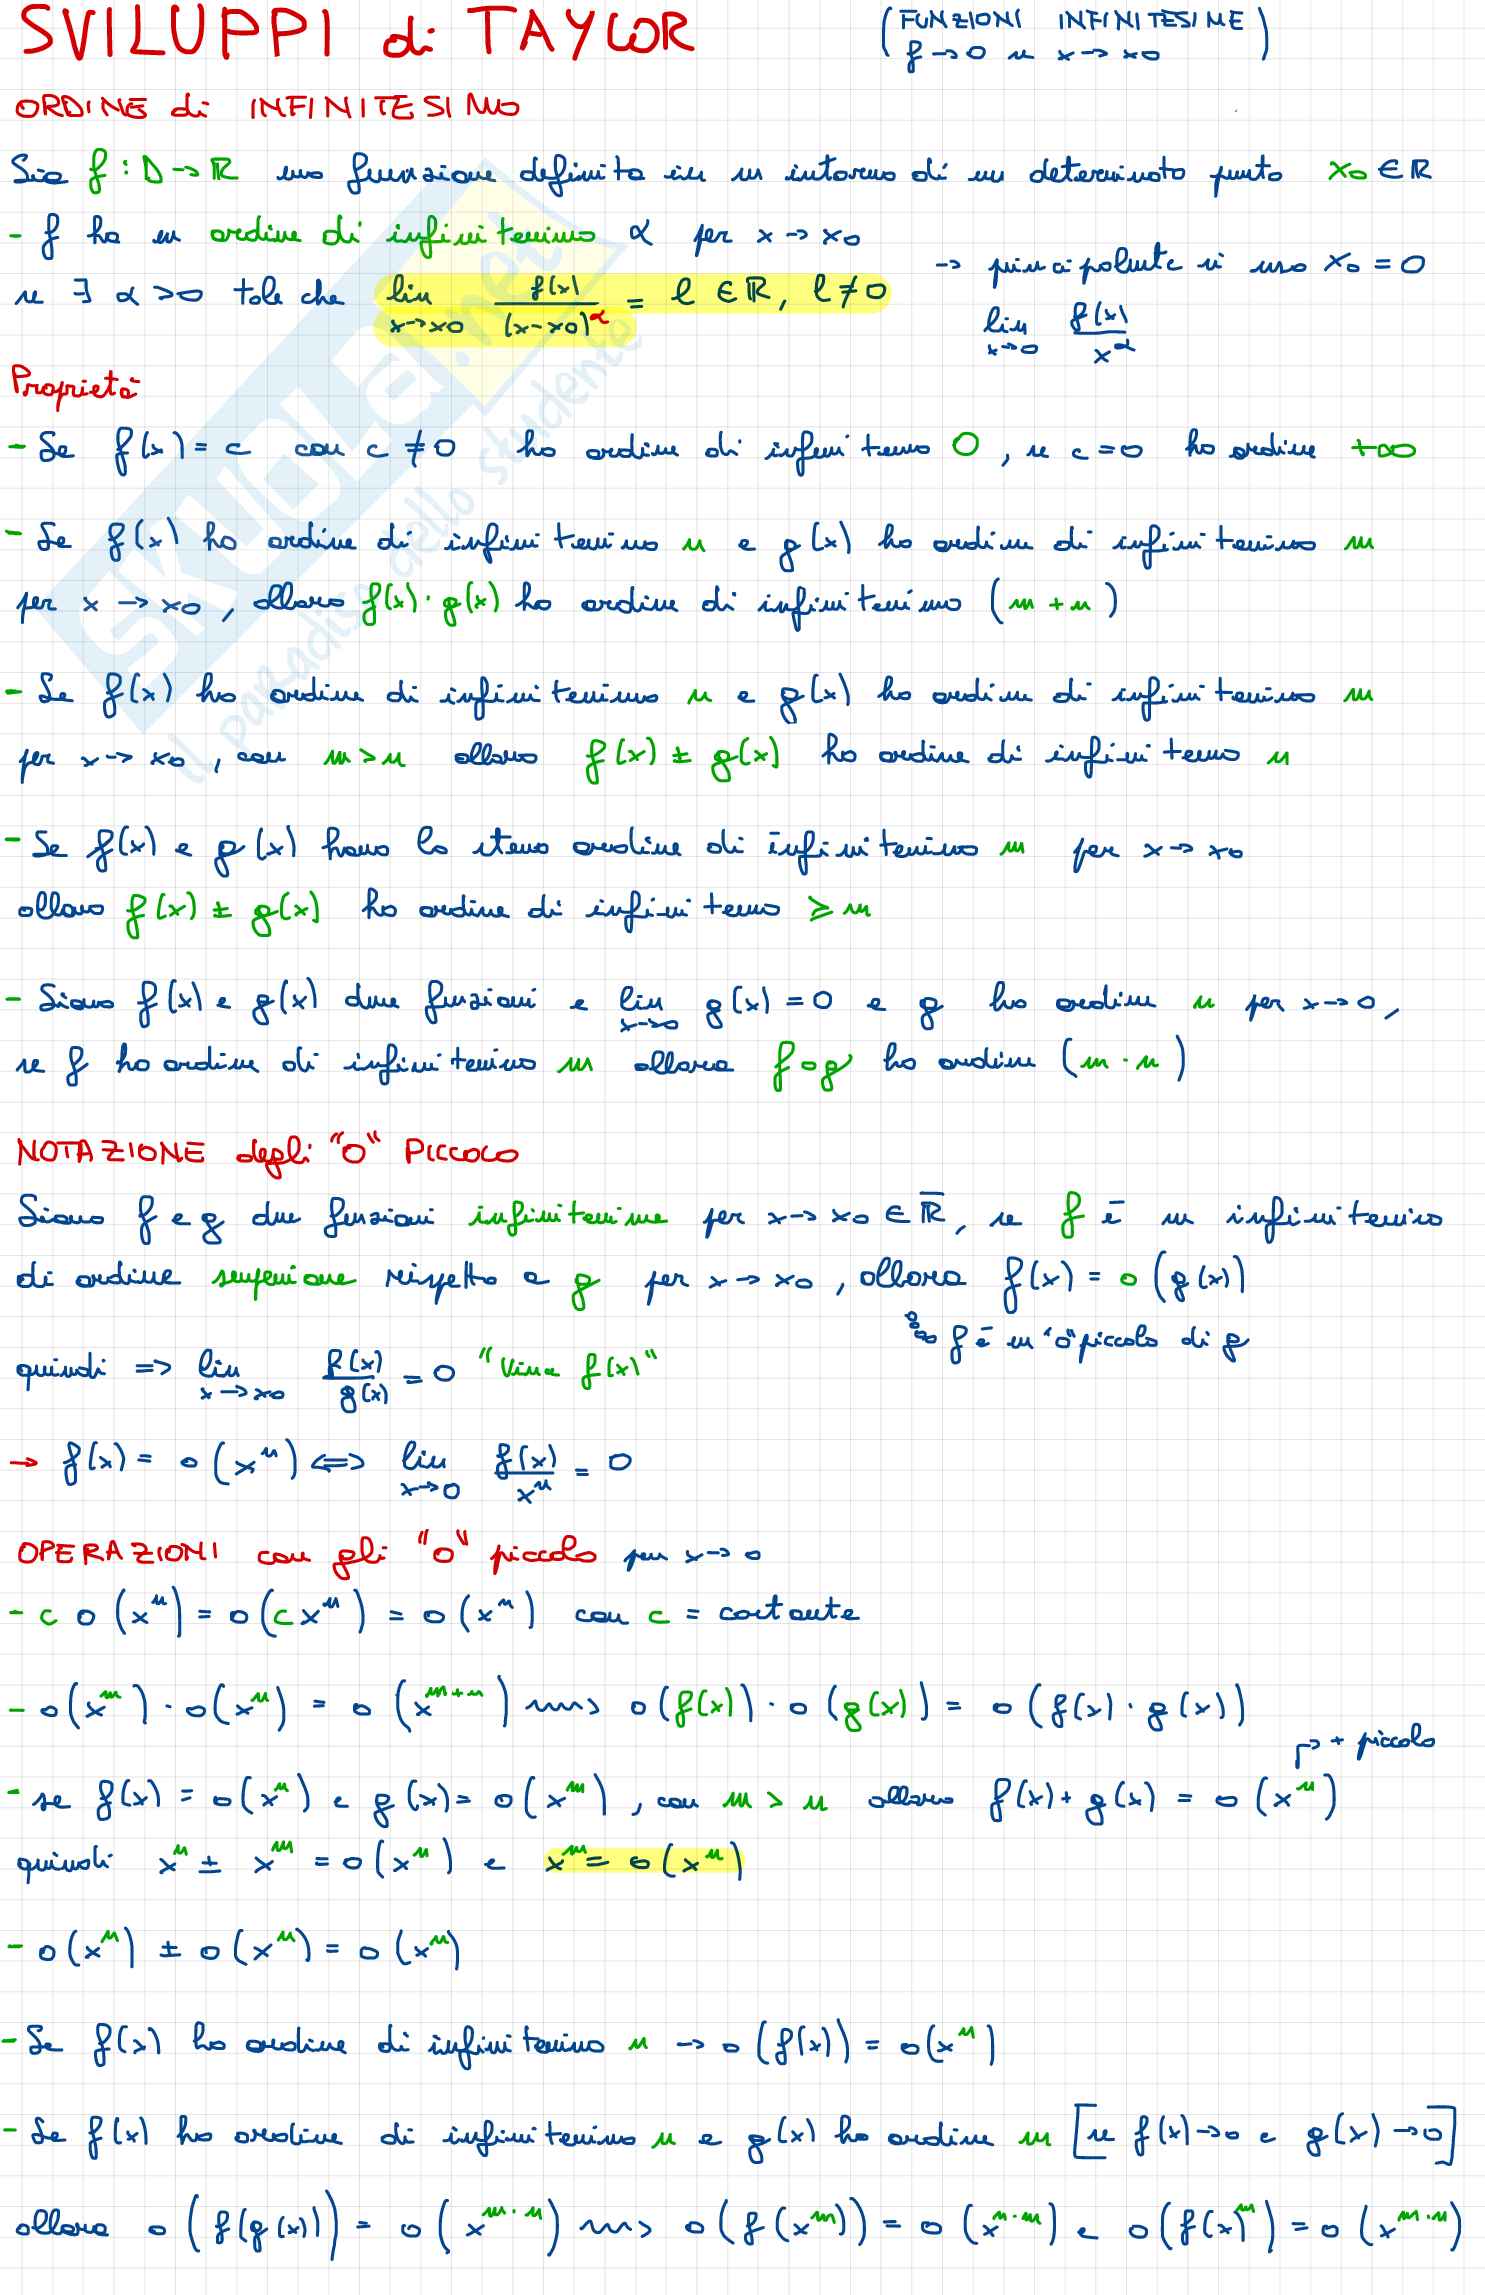 SVILUPPI di TAYLOR
( FUNZIONI INFINITESIME
f → 0 se x → x0 )
ORDINE di INFINITESIMO
Sia f : D → ℝ una funzione definita in un intorno di un determinato punto x0 ∈ ℝ
- f ha un ordine di infinitesimo α per x → x0
se ∃ α > 0 tale che lim x→x0 f(x)/(x-x0)^α = l ∈ ℝ, l ≠ 0
→ principalmente si usa x0 = 0
lim x→0 f(x)/x^α
Proprietà
- Se f(x) = c con c ≠ 0 ha ordine di infinitesimo 0, se c = 0 ha ordine +∞
- Se f(x) ha ordine di infinitesimo n e g(x) ha ordine di infinitesimo m
per x → x0, allora f(x) · g(x) ha ordine di infinitesimo (m + n)
- Se f(x) ha ordine di infinitesimo n e g(x) ha ordine di infinitesimo m
per x → x0, con m > n allora f(x) ± g(x) ha ordine di infinitesimo n
- Se f(x) e g(x) hanno lo stesso ordine di infinitesimo m per x → x0
allora f(x) ± g(x) ha ordine di infinitesimo ≥ m
- Siano f(x) e g(x) due funzioni e lim x→0 g(x) = 0 e g ha ordine n per x → 0,
se f ha ordine di infinitesimo m allora f∘g ha ordine (m · n)
NOTAZIONE degli "O" PICCOLO
Siano f e g due funzioni infinitesime per x → x0 ∈ ℝ̅, se f è un infinitesimo
di ordine superiore rispetto a g per x → x0, allora f(x) = o(g(x))
f è un "o" piccolo di g
quindi => lim x→x0 f(x)/g(x) = 0 "Vince f(x)"
→ f(x) = o(x^n) <=> lim x→0 f(x)/x^n = 0
OPERAZIONI con gli "O" piccolo per x → 0
- c o(x^n) = o(c x^n) = o(x^n) con c = costante
- o(x^m) · o(x^n) = o(x^(m+n)) ~> o(f(x)) · o(g(x)) = o(f(x) · g(x))
+ piccolo
- se f(x) = o(x^n) e g(x) = o(x^m), con m > n allora f(x) + g(x) = o(x^n)
quindi x^n ± x^m = o(x^n) e x^m = o(x^n)
- o(x^n) ± o(x^n) = o(x^n)
- Se f(x) ha ordine di infinitesimo n → o(f(x)) = o(x^n)
- Se f(x) ha ordine di infinitesimo n e g(x) ha ordine m [se f(x) → 0 e g(x) → 0]
allora o(f(g(x))) = o(x^(m·n)) ~> o(f(x^m)) = o(x^(n·m)) e o(f(x)^m) = o(x^(m·n))
SKUOLA.net
il paradiso dello studente